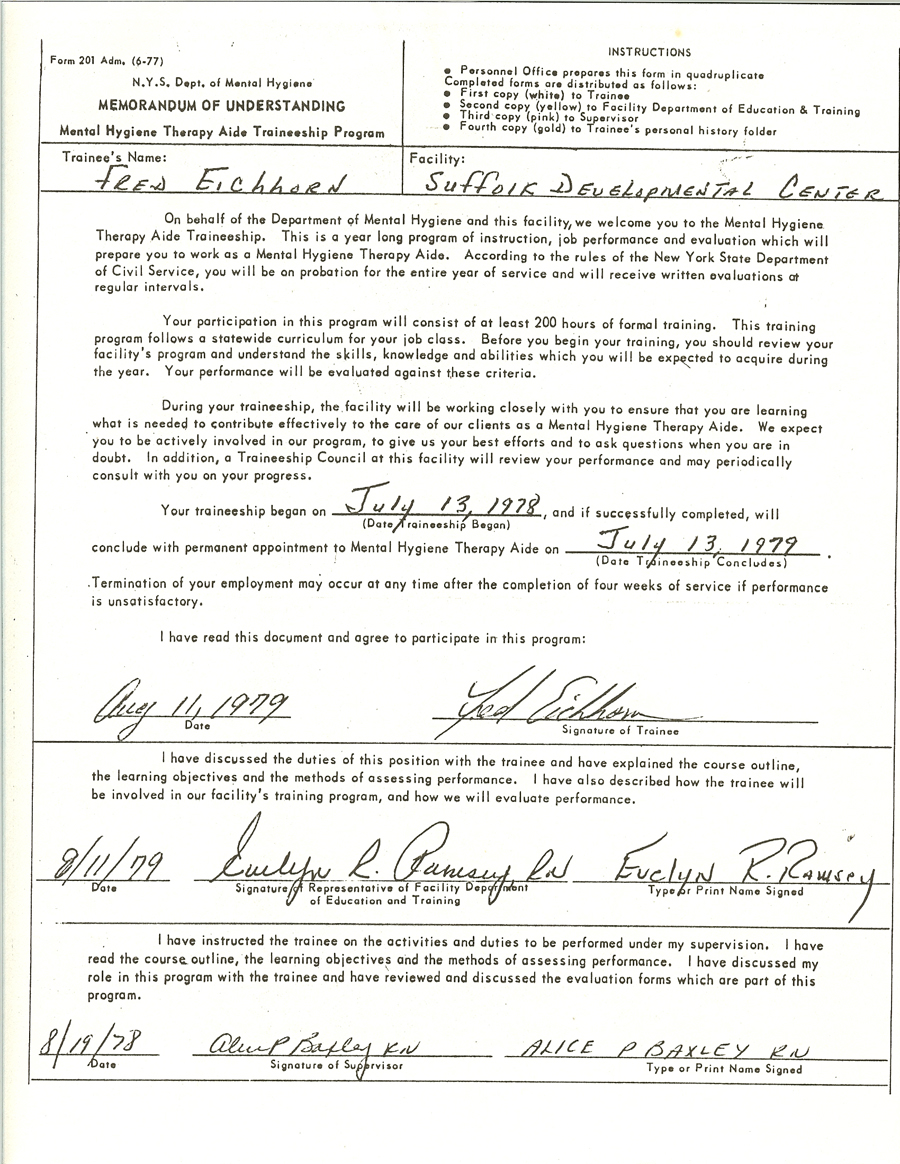 Form 201 Adm. (6-77)
N.Y.S. Dept. of Mental Hygiene
MEMORANDUM OF UNDERSTANDING
Mental Hygiene Therapy Aide Traineeship Program
INSTRUCTIONS
● Personnel Office prepares this form in quadruplicate
Completed forms are distributed as follows:
● First copy (white) to Trainee
● Second copy (yellow) to Facility Department of Education & Training
● Third copy (pink) to Supervisor
● Fourth copy (gold) to Trainee's personal history folder
Trainee's Name:
FRED EICHHORN
Facility:
SUFFOLK DEVELOPMENTAL CENTER
On behalf of the Department of Mental Hygiene and this facility, we welcome you to the Mental Hygiene
Therapy Aide Traineeship. This is a year long program of instruction, job performance and evaluation which will
prepare you to work as a Mental Hygiene Therapy Aide. According to the rules of the New York State Department
of Civil Service, you will be on probation for the entire year of service and will receive written evaluations at
regular intervals.
Your participation in this program will consist of at least 200 hours of formal training. This training
program follows a statewide curriculum for your job class. Before you begin your training, you should review your
facility's program and understand the skills, knowledge and abilities which you will be expected to acquire during
the year. Your performance will be evaluated against these criteria.
During your traineeship, the facility will be working closely with you to ensure that you are learning
what is needed to contribute effectively to the care of our clients as a Mental Hygiene Therapy Aide. We expect
you to be actively involved in our program, to give us your best efforts and to ask questions when you are in
doubt. In addition, a Traineeship Council at this facility will review your performance and may periodically
consult with you on your progress.
Your traineeship began on July 13, 1978, and if successfully completed, will
(Date Traineeship Began)
conclude with permanent appointment to Mental Hygiene Therapy Aide on July 13, 1979.
(Date Traineeship Concludes)
Termination of your employment may occur at any time after the completion of four weeks of service if performance
is unsatisfactory.
I have read this document and agree to participate in this program:
Aug 11, 1979 Fred Eichhorn
Date Signature of Trainee
I have discussed the duties of this position with the trainee and have explained the course outline,
the learning objectives and the methods of assessing performance. I have also described how the trainee will
be involved in our facility's training program, and how we will evaluate performance.
8/11/79 Evelyn R. Ramsey RN Evelyn R. Ramsey
Date Signature of Representative of Facility Department Type or Print Name Signed
of Education and Training
I have instructed the trainee on the activities and duties to be performed under my supervision. I have
read the course outline, the learning objectives and the methods of assessing performance. I have discussed my
role in this program with the trainee and have reviewed and discussed the evaluation forms which are part of this
program.
8/19/78 Alice P Baxley RN ALICE P BAXLEY RN
Date Signature of Supervisor Type or Print Name Signed